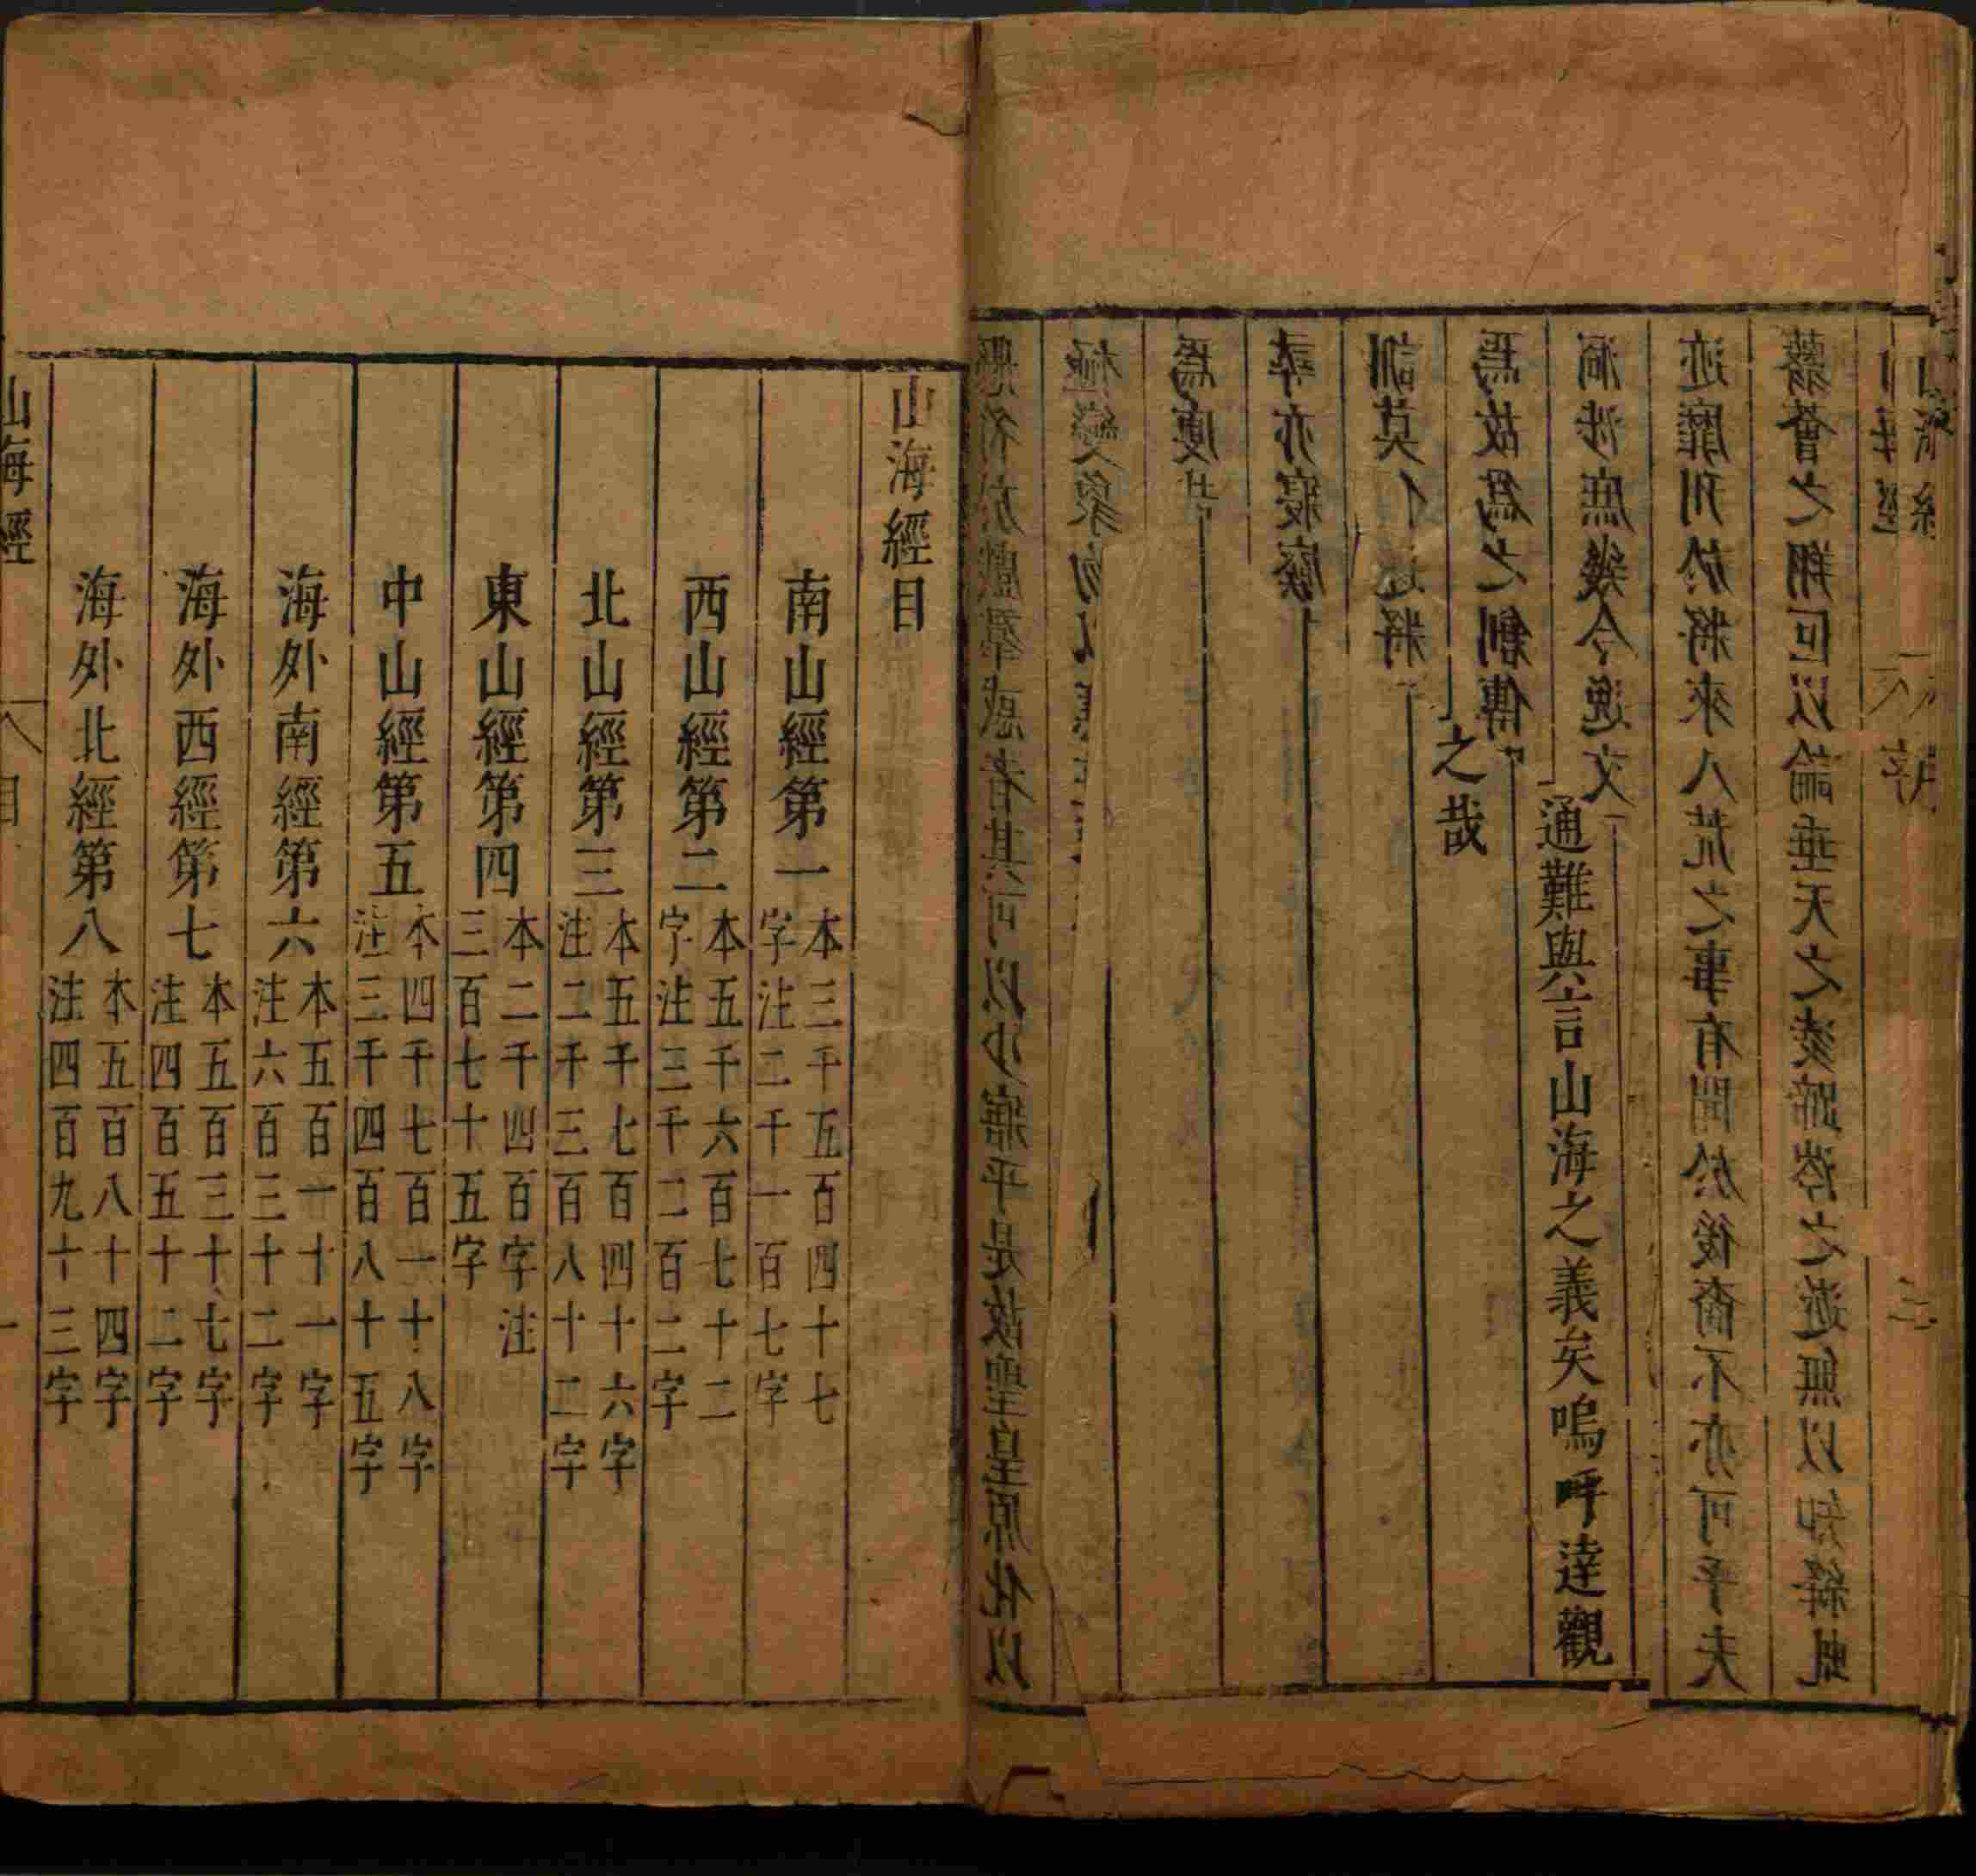 山海經 序 三
翳薈之翔叵以論垂天之凌蹄涔之遊無以知絳虬
迹靡刊於將來八荒之事有聞於後裔不亦可乎夫
洞涉庶幾令逸文
通難與言山海之義矣嗚呼達觀
焉故為之創傳
之哉
訓莫
將
尋亦寢廢
為度
極變象
懸符於戲羣惑者其可以少寤乎是故聖皇原化以
山海經目
南山經第一本三千五百四十七字注二千一百七字
西山經第二本五千六百七十二字注三千二百二字
北山經第三本五千七百四十六字注二千三百八十二字
東山經第四本二千四百字注三百七十五字
中山經第五本四千七百一十八字注三千四百八十五字
海外南經第六本五百一十一字注六百三十二字
海外西經第七本五百三十七字注四百五十二字
海外北經第八本五百八十四字注四百九十三字
山海經 目 一